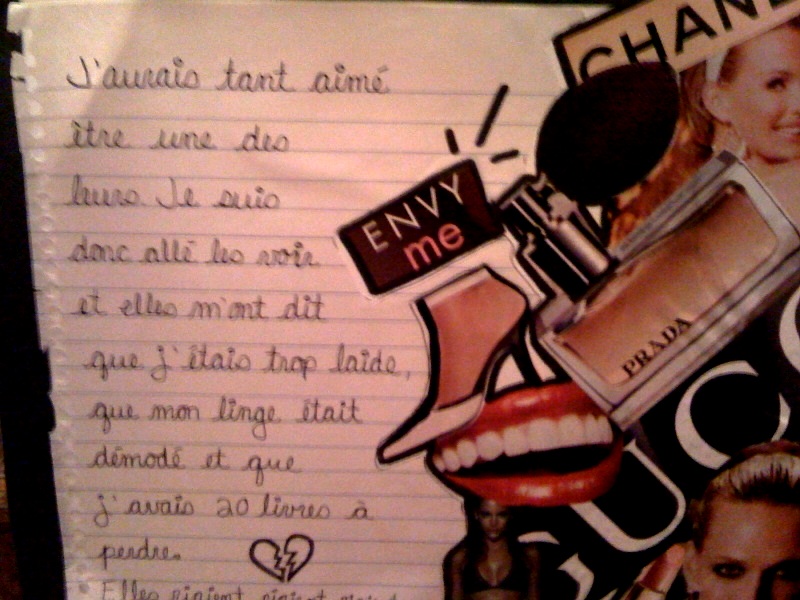 J'aurais tant aimé
être une des
leurs. Je suis
donc allé les voir
et elles m'ont dit
que j'étais trop laide,
que mon linge était
démodé et que
j'avais 20 livres à
perdre.
Elles riaient, riaient
CHANE
ENVY
me
PRADA
GUC